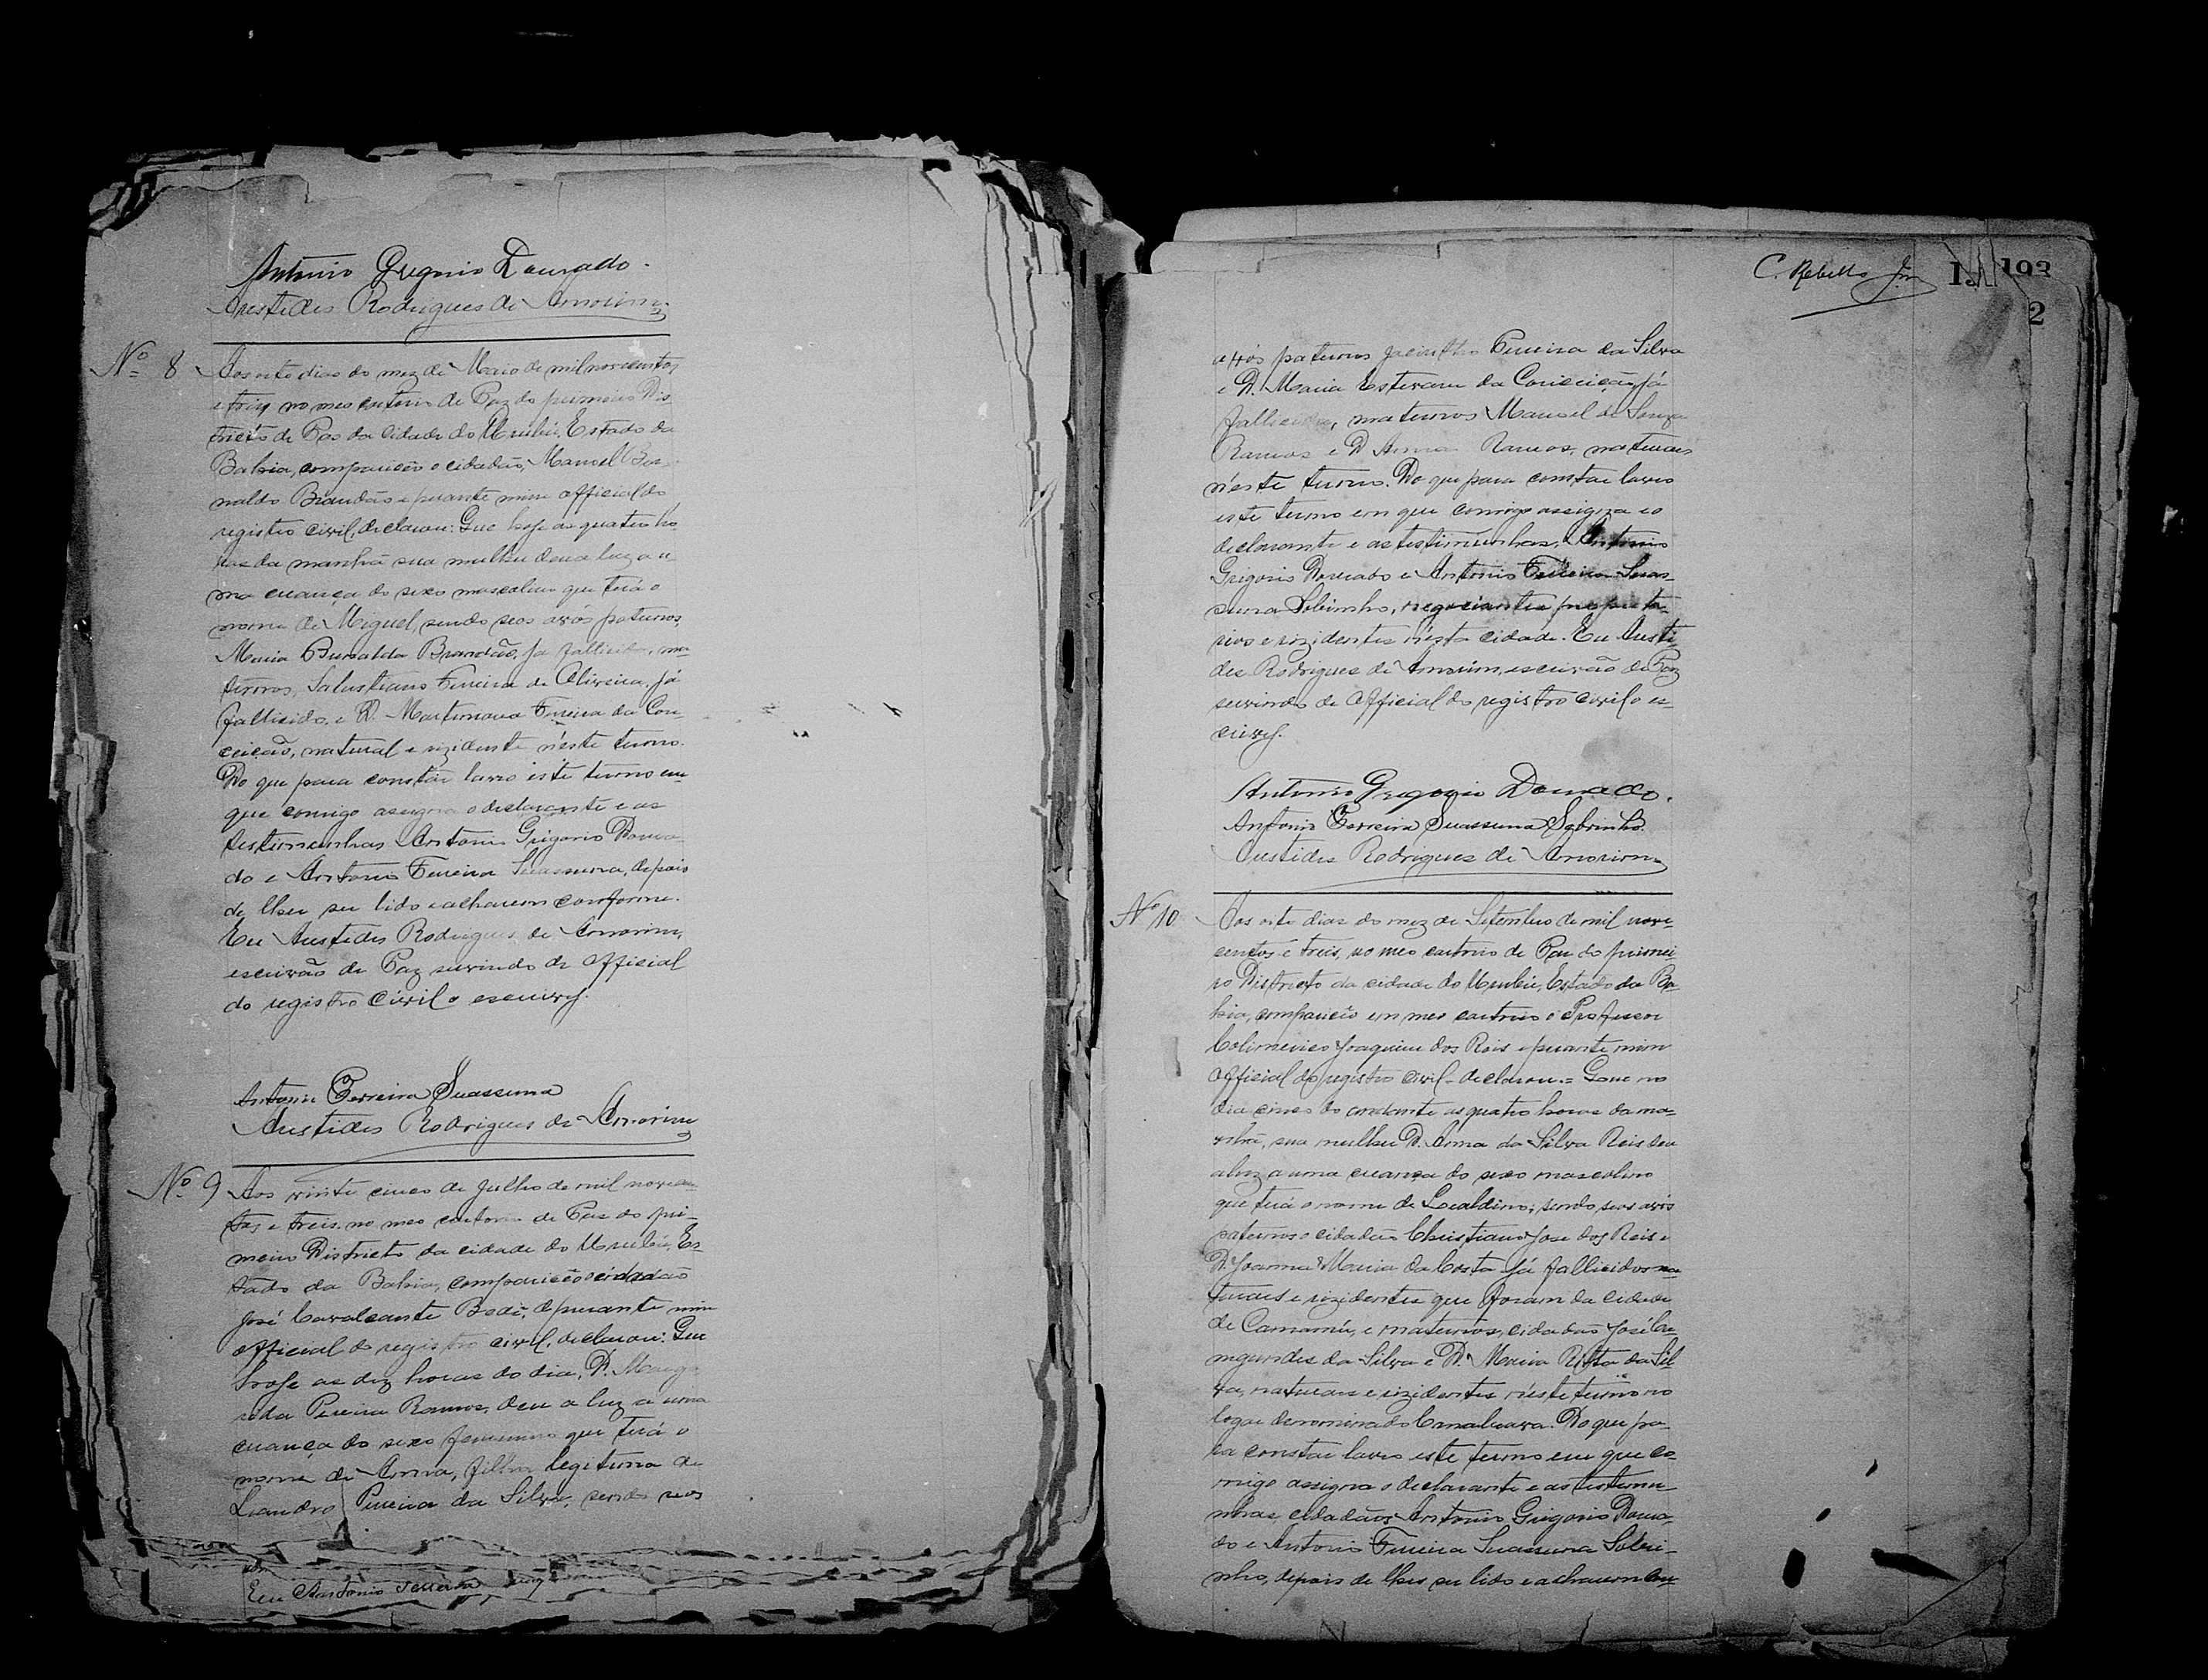 Antonio Gregorio Dourado.
Aristides Rodrigues de Amorim
Nº 8 Aos oito dias do mez de Maio de mil novecentos
e treis no meo cartorio de Paz do primeiro Dis
tricto de Paz da cidade do Urubú, Estado da
Bahia, compareceo o cidadão, Manoel Ber
naldo Brandão e perante mim official do
registro civil, declarou: Que hoje as quatro ho
ras da manhã sua mulher deu a luz a u
ma creança do sexo masculino que terá o
nome de Miguel, sendo seos avós paternos,
Maria Bernalda Brandão, já fallecida, ma
ternos, Salustiano Ferreira de Oliveira, já
fallecido, e D. Martiniana Ferreira da Con
ceição, natural e rezidente n'este termo.
Do que para constar lavro este termo em
que comigo assigna o declarante e as
testemunhas Antonio Grigorio Doura
do e Antonio Ferreira Suassuna, depois
de lhes ser lido e acharem conforme.
Eu Aristides Rodrigues de Amorim,
escrivão de Paz servindo de official
do registro civil o escrevy.
Antonio Ferreira Suassuna
Aristides Rodrigues de Amorim
Nº 9 Aos vinte cinco de Julho de mil novecen
tos e treis no meo cartorio de Paz do pri-
meiro Districto da cidade do Urubú, Es-
tado da Bahia, compareceo o cidadão
José Cavalcante Bedé, e perante mim
official do registro civil, declarou: Que
hoje as dez horas do dia, D.
Pereira Ramos, deu a luz a uma
creança do sexo femenino que terá o
nome de Anna, filha legitima de
Leandro Pereira da Silva, sendo seos
Eu Antonio Ferreira
C. Rebello Jr.
193
2
avós paternos Jacintho Pereira da Silva
e D. Maria Estevam da Conceição já
fallecidos, maternos Manoel de Souza
Ramos e D Anna Ramos, naturaes
n'este termo. Do que para constar lavro
este termo em que comigo assigna o
declarante e as testimunhas, Antonio
Grigorio Dourado e Antonio Ferreira Suas-
suna Sobrinho, negociantes proprieta-
rios e rezidentes n'esta cidade. Eu Aristi-
des Rodrigues de Amorim, escrivão de Paz
servindo de official do registro civil o es-
crevy.
Antonio Gregorio Dourado.
Antonio Ferreira Suassuna Sobrinho.
Aristides Rodrigues de Amorim
Nº 10 Aos oito dias do mez de Setembro de mil nove-
centos e treis, no meo cartorio de Paz do primei-
ro Districto da cidade do Urubú, Estado da Ba-
hia, compareceo em meo cartorio o Professor
Joaquim dos Reis e perante mim
official do registro civil declarou = Que no
dia cinco do andante as quatro horas da ma-
nhã, sua mulher D. Anna da Silva Reis deu
a luz a uma creança do sexo masculino
que terá o nome de Lealdino; sendo seos avós
paternos o cidadão Christiano José dos Reis e
D. Joanna Maria da Costa já fallecidos na-
turaes e rezidentes que foram da cidade
de Camamú, e maternos, cidadão José
da Silva e D. Maria Ritta da Sil
va, naturaes e rezidentes n'este termo no
logar denominado. Do que pa-
ra constar lavro este termo em que co-
migo assigna o declarante e as testemu
nhas, cidadãos Antonio Grigorio Doura-
do e Antonio Ferreira Suassuna Sobri-
nho, depois de lhes ser lido e acharem con-